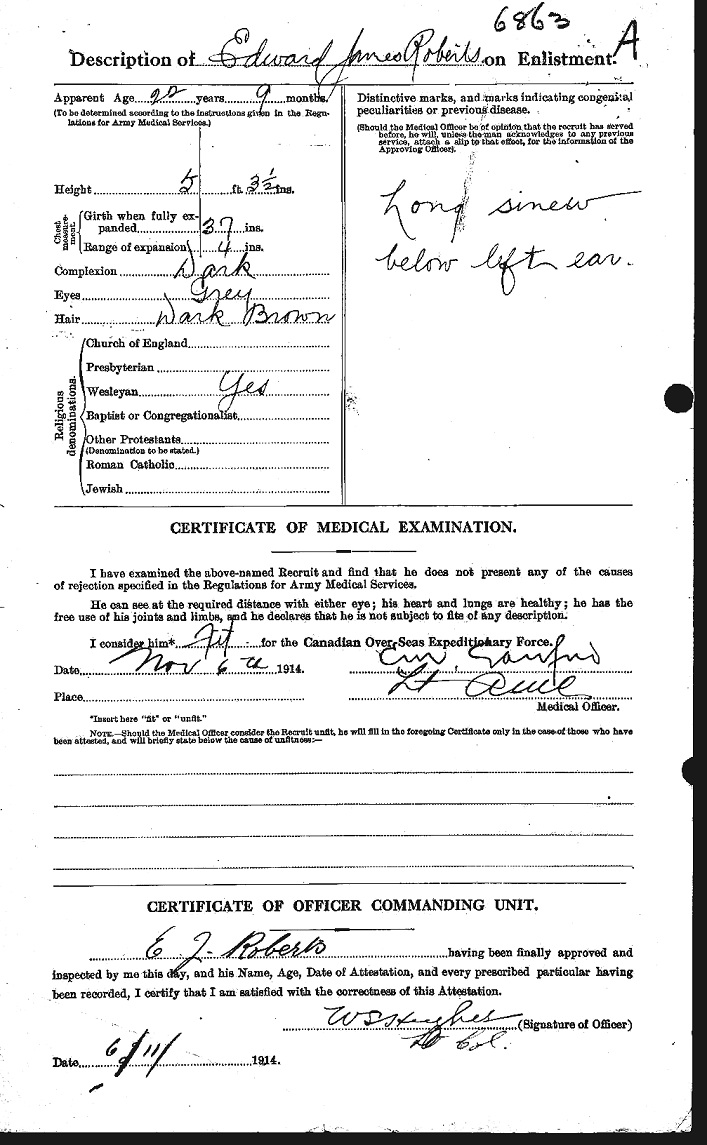 6863
Description of Edward James Roberts on Enlistment. A
Apparent Age 22 years 9 months.
(To be determined according to the instructions given in the Regu-
lations for Army Medical Services.)
Height 5 ft. 3½ ins.
Chest measure-ment.
Girth when fully ex-
panded 37 ins.
Range of expansion 4 ins.
Complexion Dark
Eyes Grey
Hair Dark Brown
Religious denominations.
Church of England
Presbyterian
Wesleyan Yes
Baptist or Congregationalist
Other Protestants
(Denomination to be stated.)
Roman Catholic
Jewish
Distinctive marks, and marks indicating congenital
peculiarities or previous disease.
(Should the Medical Officer be of opinion that the recruit has served
before, he will, unless the man acknowledges to any previous
service, attach a slip to that effect, for the information of the
Approving Officer).
Long sinew
below left ear.
CERTIFICATE OF MEDICAL EXAMINATION.
I have examined the above-named Recruit and find that he does not present any of the causes
of rejection specified in the Regulations for Army Medical Services.
He can see at the required distance with either eye; his heart and lungs are healthy; he has the
free use of his joints and limbs, and he declares that he is not subject to fits of any description.
I consider him* Fit for the Canadian Over-Seas Expeditionary Force.
Date Nov 6th 1914.
Place
Lt AMC
Medical Officer.
*Insert here "fit" or "unfit."
NOTE.—Should the Medical Officer consider the Recruit unfit, he will fill in the foregoing Certificate only in the case of those who have
been attested, and will briefly state below the cause of unfitness:—
CERTIFICATE OF OFFICER COMMANDING UNIT.
E J. Roberts having been finally approved and
inspected by me this day, and his Name, Age, Date of Attestation, and every prescribed particular having
been recorded, I certify that I am satisfied with the correctness of this Attestation.
WSHughes (Signature of Officer)
Lt Col.
Date 6/11/ 1914.